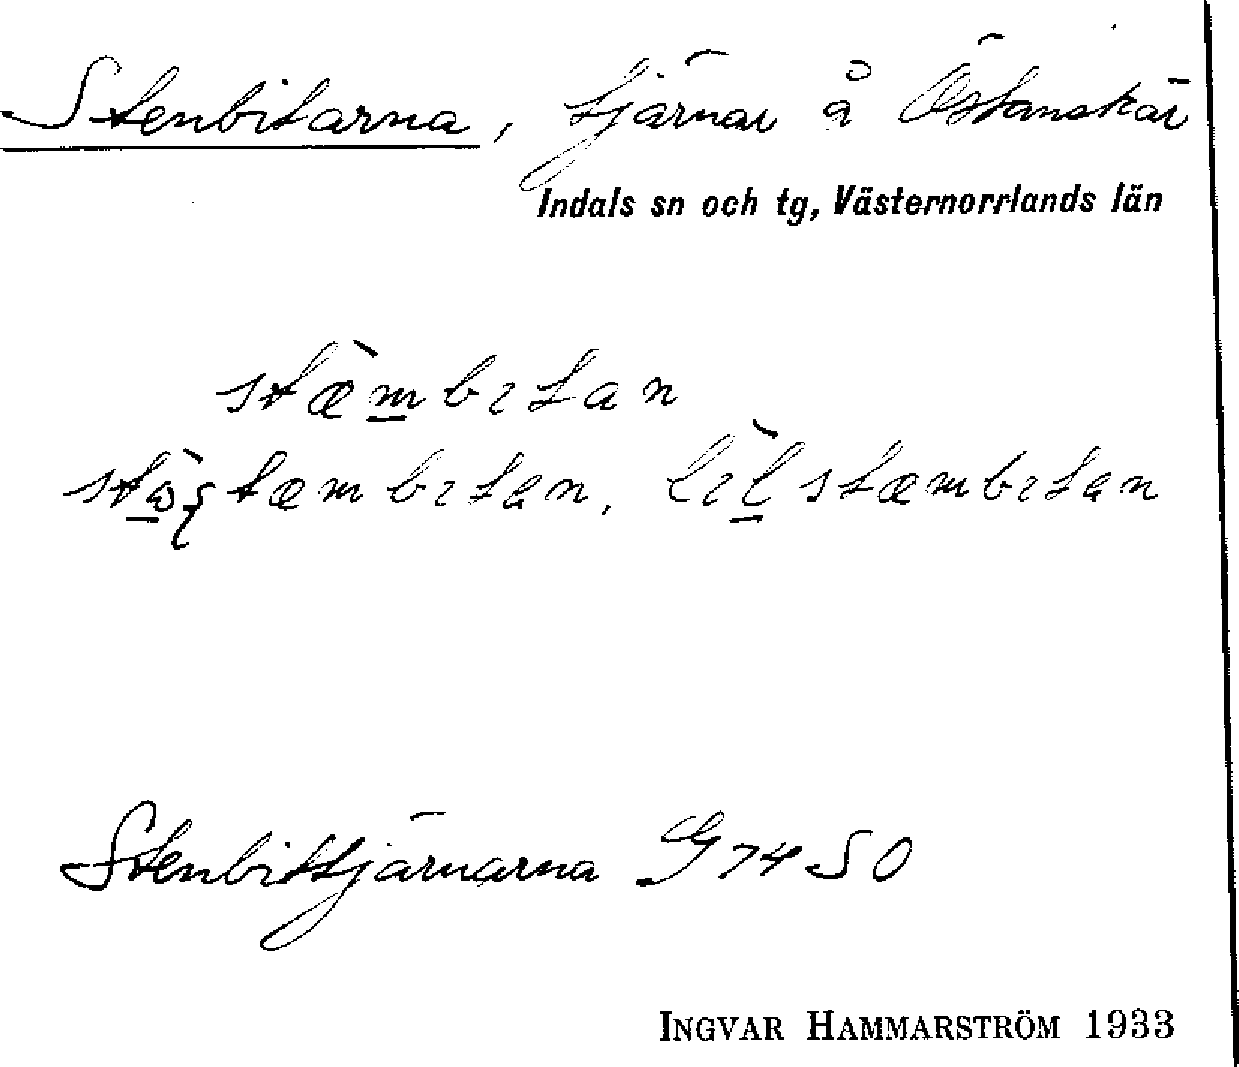 Stenbitarna, tjärnar å Östanskär
Indals sn och tg, Västernorrlands län
stæ̀mbɩtan
stæmbɩtan, lɩ̀lstæmbɩtan
Stenbittjärnarna G 74 SO
INGVAR HAMMARSTRÖM 1933